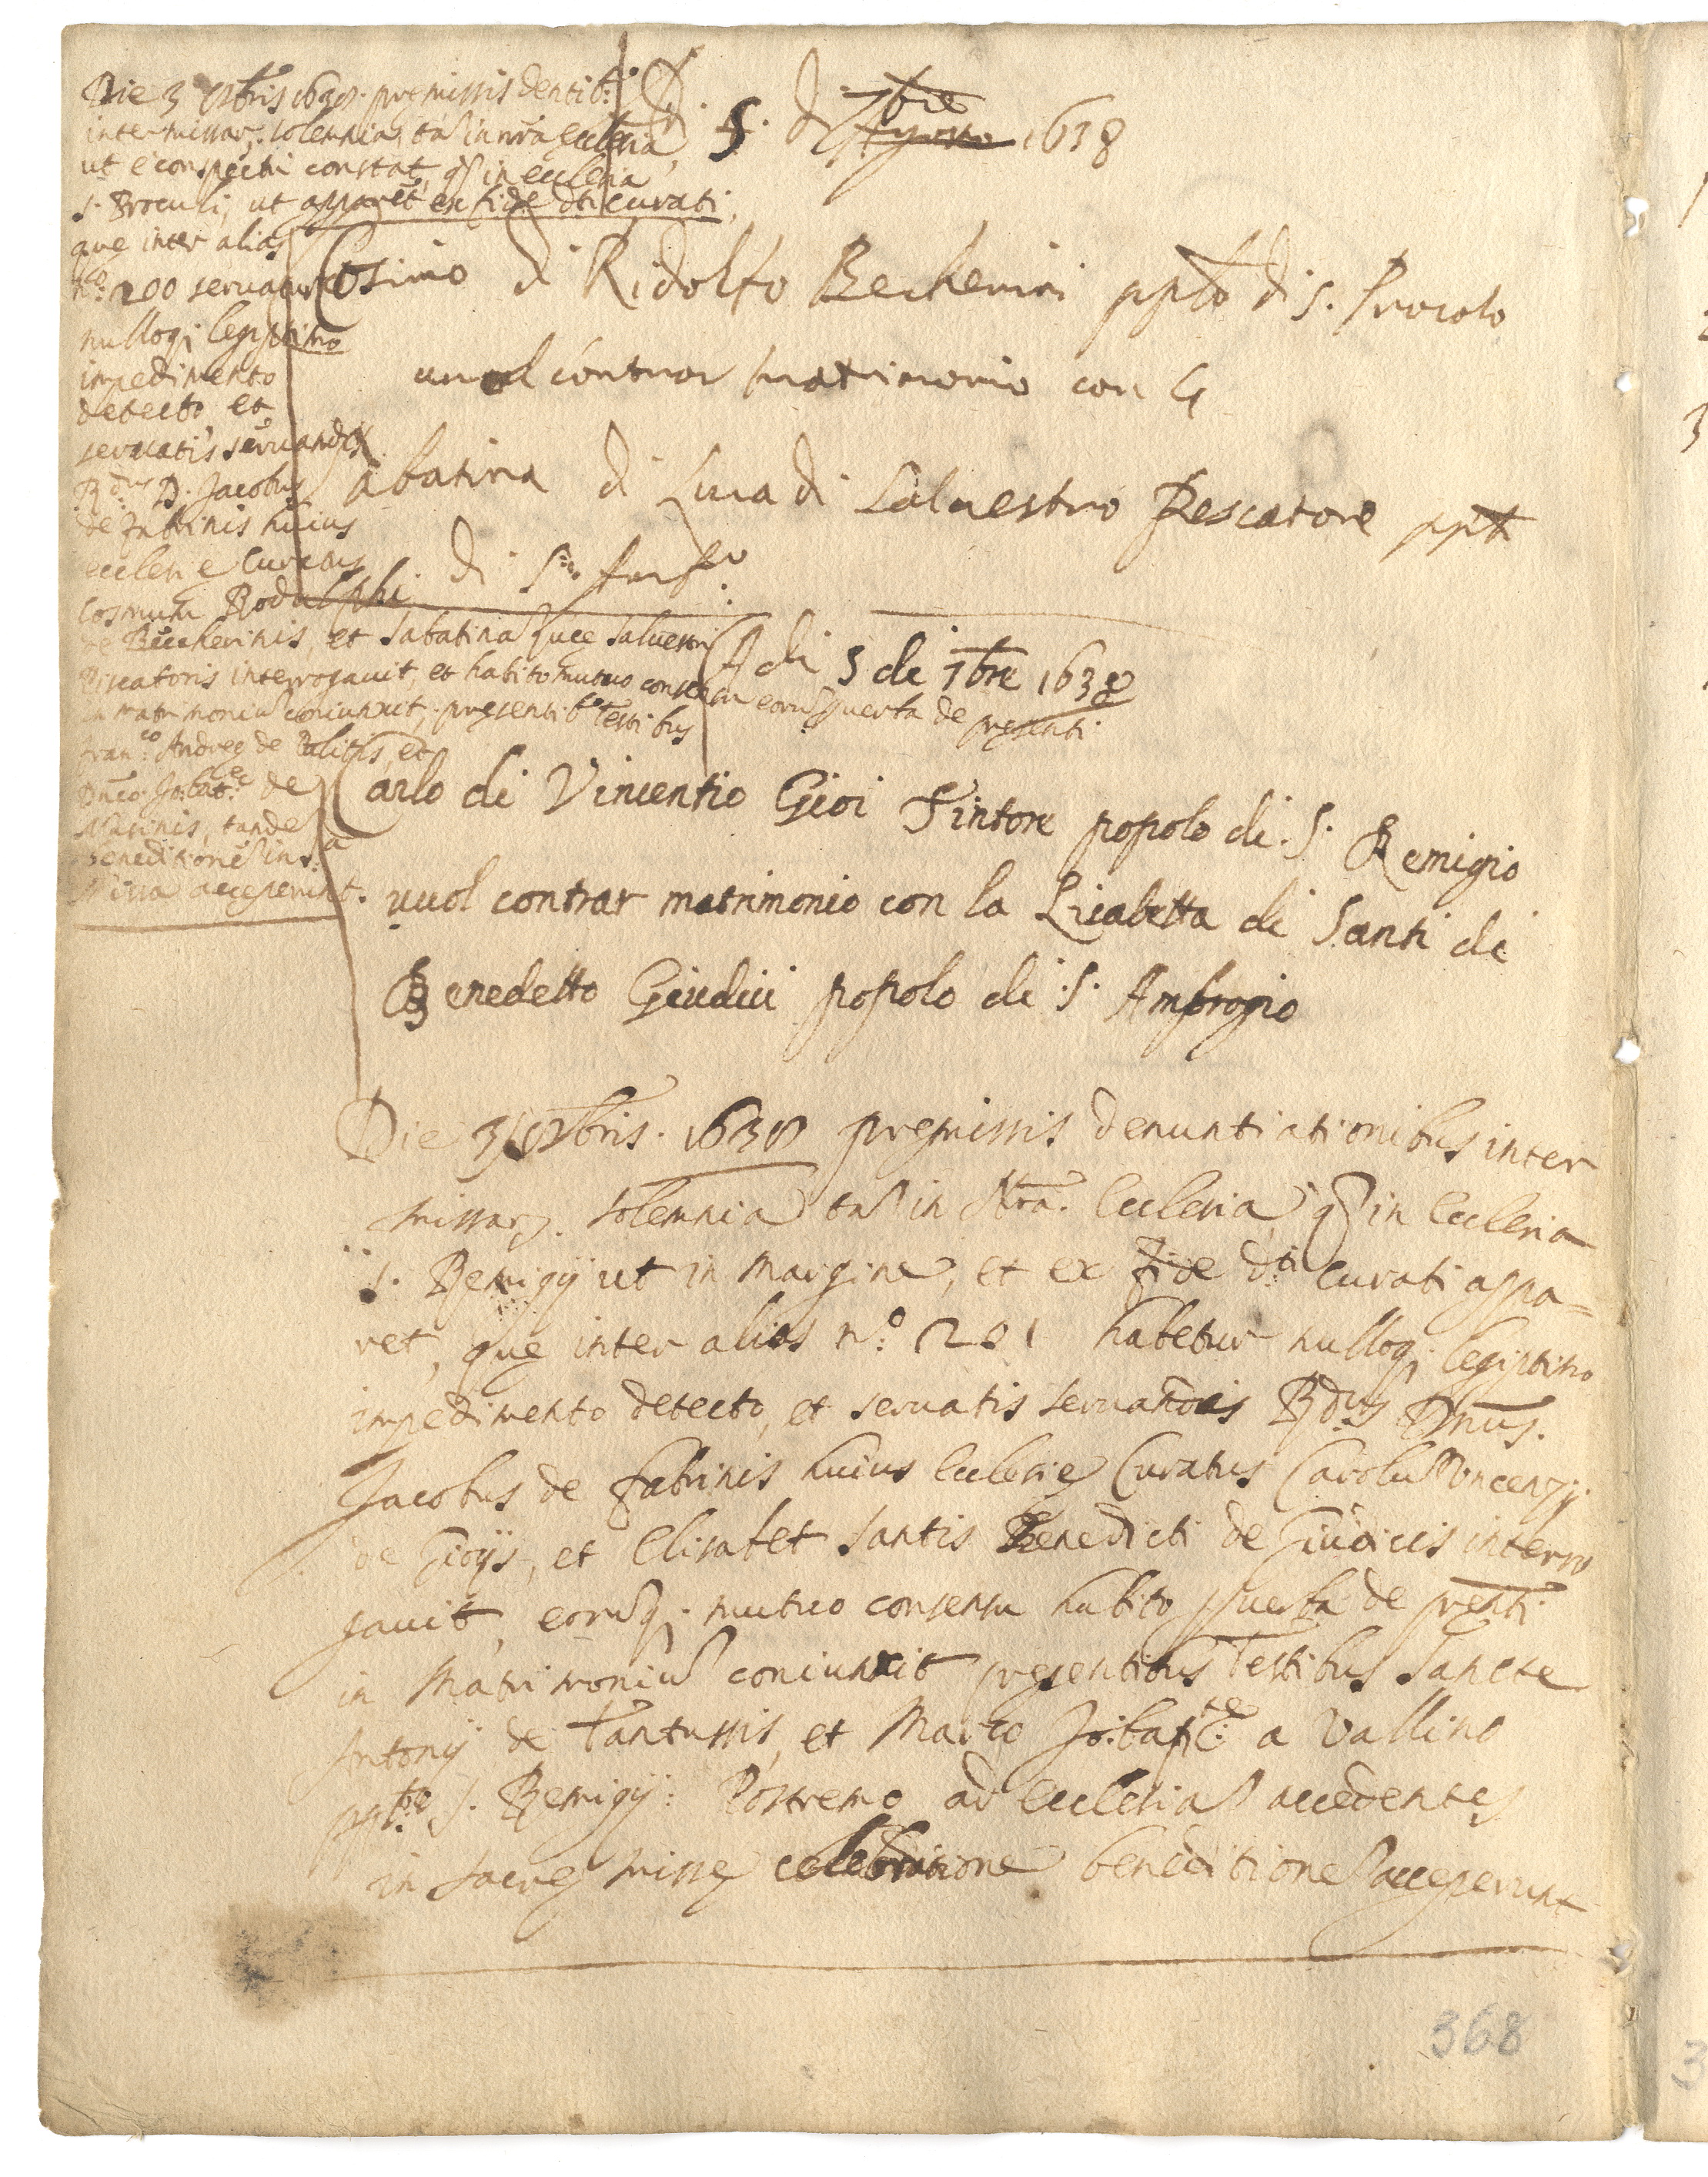 Die 3 8bris 1638. premissis dentib:
inter missar: solemnia, ta in nra Ecclesia,
ut e conspectu constat, q in ecclesia
S. Proculi, ut apparet ex fide dti curati,
que inter alias
n.o 200 servatur
nulloq; legiptimo
impedimento
detecto, et
servatis servandis
R.dus D. Jacobus
de Fabrinis huius
ecclesie Curatus
Cosmum Rodulphi
de Beccherinis, et Sabatina Luce Salvestri
Piscatoris interrogavit, et habito mutuo consensu eoru p verba de presenti
in matrimoniu coniunxit, presentib. Testibus
Fran.co Andree de Politis, et
Dnco Jo:bat.e de
Masinis, tande
beneditione in s.a
Missa acceperunt.
A di 5. di Agosto 7bre 1638
Cosimo di Ridolfo Becherini pplo di S. Procolo
vuol contrar matrimonio con
abatina di Luca di Salvestro Pescatore ppl
di S.
A di 5 di 7bre 1638
Carlo di Vincentio Gioi Tintore popolo di S. Remigio
vuol contrar matrimonio con la Lisabetta di Santi di
Benedetto Giudici popolo di S. Ambrogio
Die 3 8bris. 1638 premissis denuntiationibus inter
missar. solemnia ta in Nra. Ecclesia, q in Ecclesia
S. Remigij ut in margine, et ex fide d.ti Curati appa=
ret, que inter alias n.o 201 habetur nulloq; legiptimo
impedimento detecto, et servatis servandis R.dus Dnus.
Jacobus de Fabrinis huius Ecclesie Curatus Carolu Vincenzij
de Gioijs, et Elisabet Santis Benedicti de Giudicis interro
gavit, eoruq; mutuo consensu habito p verba de prnti
in Matrimoniu coniunxit presentibus Testibus Sancte
Antonij de Tantussis, et Marco Jo:bapt.e a Vallino
ppli S. Remigij: Postremo ad Ecclesia accedentes
in sacre misse celebratione beneditione acceperunt
368